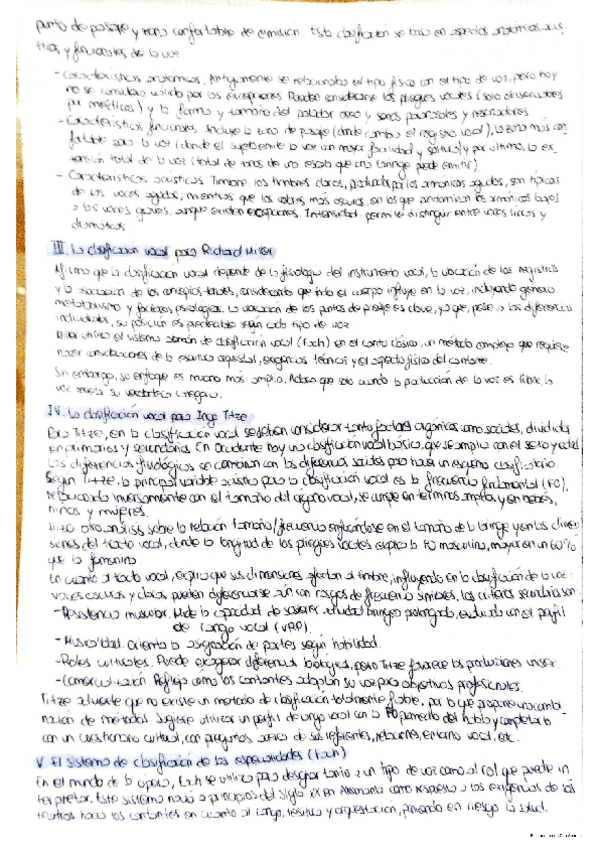 punto de pasaje y zona confortable de emisión. Esta clasificación se basa en aspectos anatómicos, acús
ticos y funcionales de la voz.
- Características anatómicas. Antiguamente se relacionaba el tipo físico con el tipo de voz, pero hoy
no se considera válido por las excepciones. Pueden considerarse los pliegues vocales (solo observables
por médicos) y la forma y tamaño del paladar óseo y senos paranasales y resonadores
- Características funcionales. Incluye la zona de pasaje (donde cambia el registro vocal), la zona más con
fortable para la voz (donde el sujeto emite la voz con mayor facilidad y soltura) y por último, la ex
tensión total de la voz (total de tonos de una escala que una laringe puede emitir)
- Características acústicas. Timbre: los timbres claros, producidos por los armónicos agudos, son típicos
de las voces agudas, mientras que los colores más oscuros, en los que predominan los armónicos bajos
a las voces graves, aunque existen excepciones. Intensidad: permite distinguir entre voces líricas y
dramáticas
III. La clasificación vocal para Richard Miller
Afirma que la clasificación vocal depende de la fisiología del instrumento vocal, la ubicación de los registros
y la asociación de los conceptos tonales, considerando que todo el cuerpo influye en la voz, incluyendo género,
metabolismo y factores psicológicos. La ubicación de los puntos de pasaje es clave, ya que, pese a las diferencias
individuales, su posición es predecible según cada tipo de voz.
Miller utiliza el sistema alemán de clasificación vocal (Fach) en el canto clásico, un método complejo que requiere
hacer consideraciones de la escritura orquestal, exigencias técnicas y el aspecto físico del cantante.
Sin embargo, su enfoque es mucho más amplio. Aclara que solo cuando la producción de la voz es libre, la
voz revela su verdadera categoría.
IV. La clasificación vocal para Ingo Titze
Para Titze, en la clasificación vocal se deben considerar tanto factores orgánicos como sociales, divididos
en primarios y secundarios. En occidente hay una clasificación vocal básica, que se amplía con el sexo y edad
Las diferencias fisiológicas se combinan con las diferencias sociales para hacer un esquema clasificatorio.
Según Titze, la principal variable acústica para la clasificación vocal es la frecuencia fundamental (F0),
relacionada inversamente con el tamaño del órgano vocal, se cumple en términos amplios y en bebés,
niños y mujeres.
Hizo otro análisis sobre la relación tamaño/frecuencia enfocándose en el tamaño de la laringe y en las dimen
siones del tracto vocal, donde la longitud de los pliegues vocales explica la F0 masculina, mayor en un 60%
que la femenina.
En cuanto al tracto vocal, explica que sus dimensiones afectan al timbre, influyendo en la clasificación de la voz:
voces oscuras y claras pueden diferenciarse aún con rasgos de frecuencia similares. Los criterios secundarios son:
- Resistencia muscular. Mide la capacidad de sostener actividad laríngea prolongada, evaluada con el perfil
de rango vocal (VRP).
- Musicalidad. Orienta la asignación de partes según habilidad.
- Roles culturales. Puede exagerar diferencias biológicas, pero Titze favorece las producciones unisex.
- Comercialización. Refleja cómo los cantantes adaptan su voz para objetivos profesionales.
Titze advierte que no existe un método de clasificación totalmente fiable, por lo que propone una combi
nación de métodos. Sugiere utilizar un perfil de rango vocal con la F0 promedio del habla y completarlo
con un cuestionario cultural, con preguntas acerca de sus referentes, relaciones, entorno vocal, etc.
V. El sistema de clasificación de las especialidades (Fach)
En el mundo de la ópera, Fach se utiliza para designar tanto a un tipo de voz como al rol que puede in
terpretar. Este sistema nació a principios del siglo XX en Alemania como respuesta a las exigencias de los
teatros hacia los cantantes en cuanto al rango, tesitura y orquestación, poniendo en riesgo la salud.